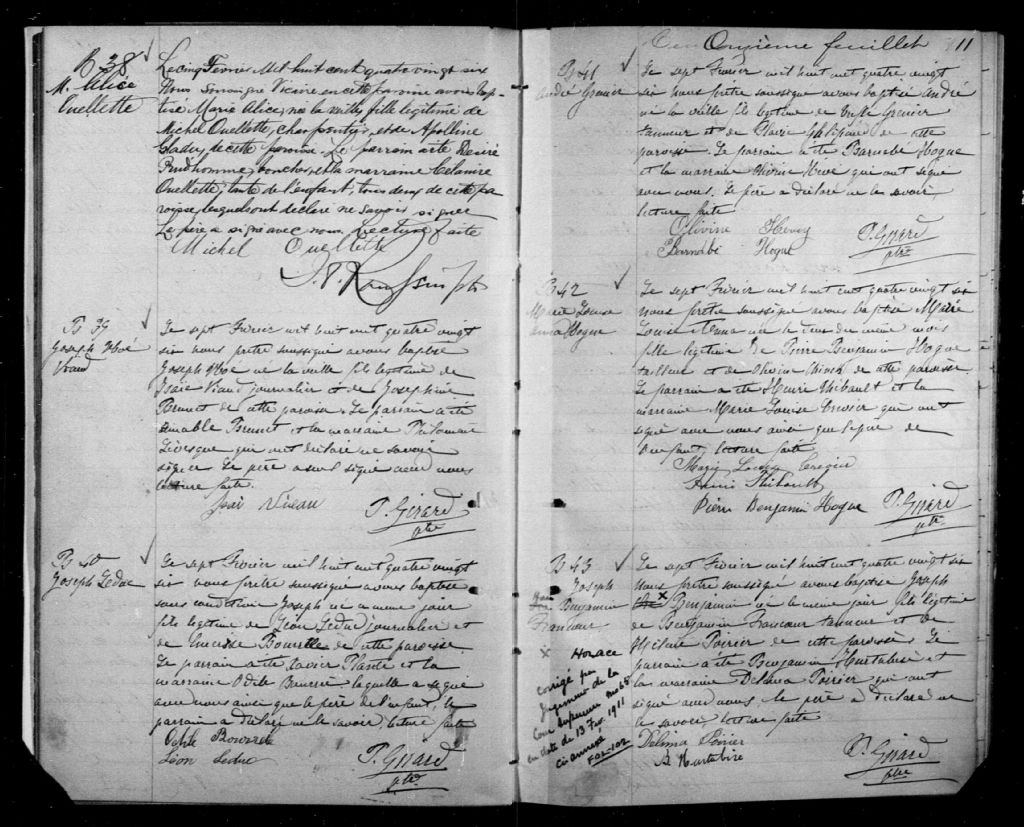 B 38
M. Alice
Ouellette
Le cinq Fevrier Mil huit cent quatre vingt six
Nous soussigné Vicaire en cette paroisse avons bap-
tisé Marie Alice, née la veille, fille légitime de
Michel Ouellette, charpentier, et de Apolline
de cette paroisse. Le parrain a été Désiré
Prudhomme, boucher et la marraine Célanire
Ouellette, tante de l'enfant, tous deux de cette pa
roisse, lesquels ont déclaré ne savoir signer
Le père a signé avec nous. Lecture faite
Michel Ouellette
B 39
Joseph Noé
Viau
Le sept Février mil huit cent quatre vingt
six nous prêtre soussigné avons baptisé
Joseph Noé né la veille fils légitime de
Isaïe Viau journalier et de Josephine
Brunet de cette paroisse. Le parrain a été
Aimable Brunet et la marraine Philomène
Lévesque qui ont déclaré ne savoir
signer. Le père a seul signé avec nous
lecture faite.
P. Girard
ptre
B 40
Joseph Leduc
Le sept Février mil huit cent quatre vingt
six nous prêtre soussigné avons baptisé
sous condition Joseph né ce même jour
fils légitime de Léon Leduc journalier et
de de cette paroisse.
Le parrain a été Xavier Plante et la
marraine Odile laquelle a signé
avec nous ainsi que le père de l'enfant, le
parrain a déclaré ne le savoir, lecture faite
Odile
Léon Leduc
P. Girard
ptre
Onzième feuillet 11
B 41
André Grenier
Le sept Février mil huit cent quatre vingt
six nous prêtre soussigné avons baptisé André
né la veille fils légitime de Grenier
tanneur et de de cette
paroisse. Le parrain a été Barnabé Hogue
et la marraine qui ont signé
avec nous. Le père a déclaré ne le savoir,
lecture faite
Olivine
Barnabé Hogue
P. Girard
ptre
B 42
Marie Louise
Anna Hogue
Le sept Février mil huit cent quatre vingt six
nous prêtre soussigné avons baptisé Marie
Louise Anna née le du même mois
fille légitime de Pierre Benjamin Hogue
tailleur et de de cette paroisse.
Le parrain a été Henri Thibault et la
marraine Marie Louise qui ont
signé avec nous ainsi que le père de
l'enfant, lecture faite
Marie Louise
Henri Thibault
Pierre Benjamin Hogue
P. Girard
ptre
B 43
Joseph
Benjamin
Francoeur
× Horace
corrigé par
jugement de la
Cour Supérieure
en date de 13 Fev. 1911
ci-annexé
FOL-102
Le sept Février mil huit cent quatre vingt six
nous prêtre soussigné avons baptisé Joseph
× Benjamin né le même jour fils légitime
de Benjamin Francoeur tanneur et de
Poirier de cette paroisse. Le
parrain a été Benjamin Hurtubise et
la marraine Délima Poirier qui ont
signé avec nous, le père a déclaré ne
le savoir, lecture faite
Délima Poirier
B. Hurtubise
P. Girard
ptre